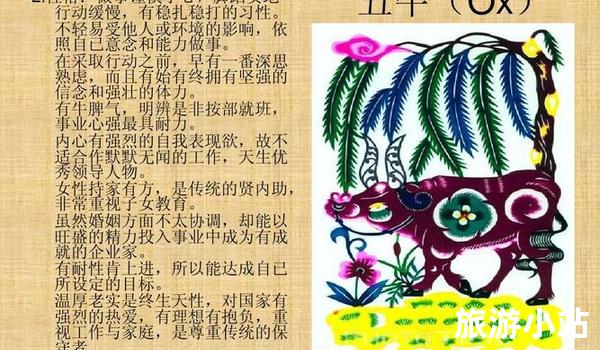 行动缓慢，有稳扎稳打的习性。
不轻易受他人或环境的影响，依
照自己意念和能力做事。
在采取行动之前，早有一番深思
熟虑，而且有始有终拥有坚强的
信念和强壮的体力。
有牛脾气，明辨是非按部就班，
事业心强最具耐力。
内心有强烈的自我表现欲，故不
适合作默默无闻的工作，天生优
秀领导人物。
女性持家有方，是传统的贤内助，
非常重视子女教育。
虽然婚姻方面不太协调，却能以
旺盛的精力投入事业中成为有成
就的企业家。
有耐性肯上进，所以能达成自己
所设定的目标。
温厚老实是终生天性，对国家有
强烈的热爱，有理想有抱负，重
视工作与家庭，是尊重传统的保
守者
丑牛（Ox）
旅游小站